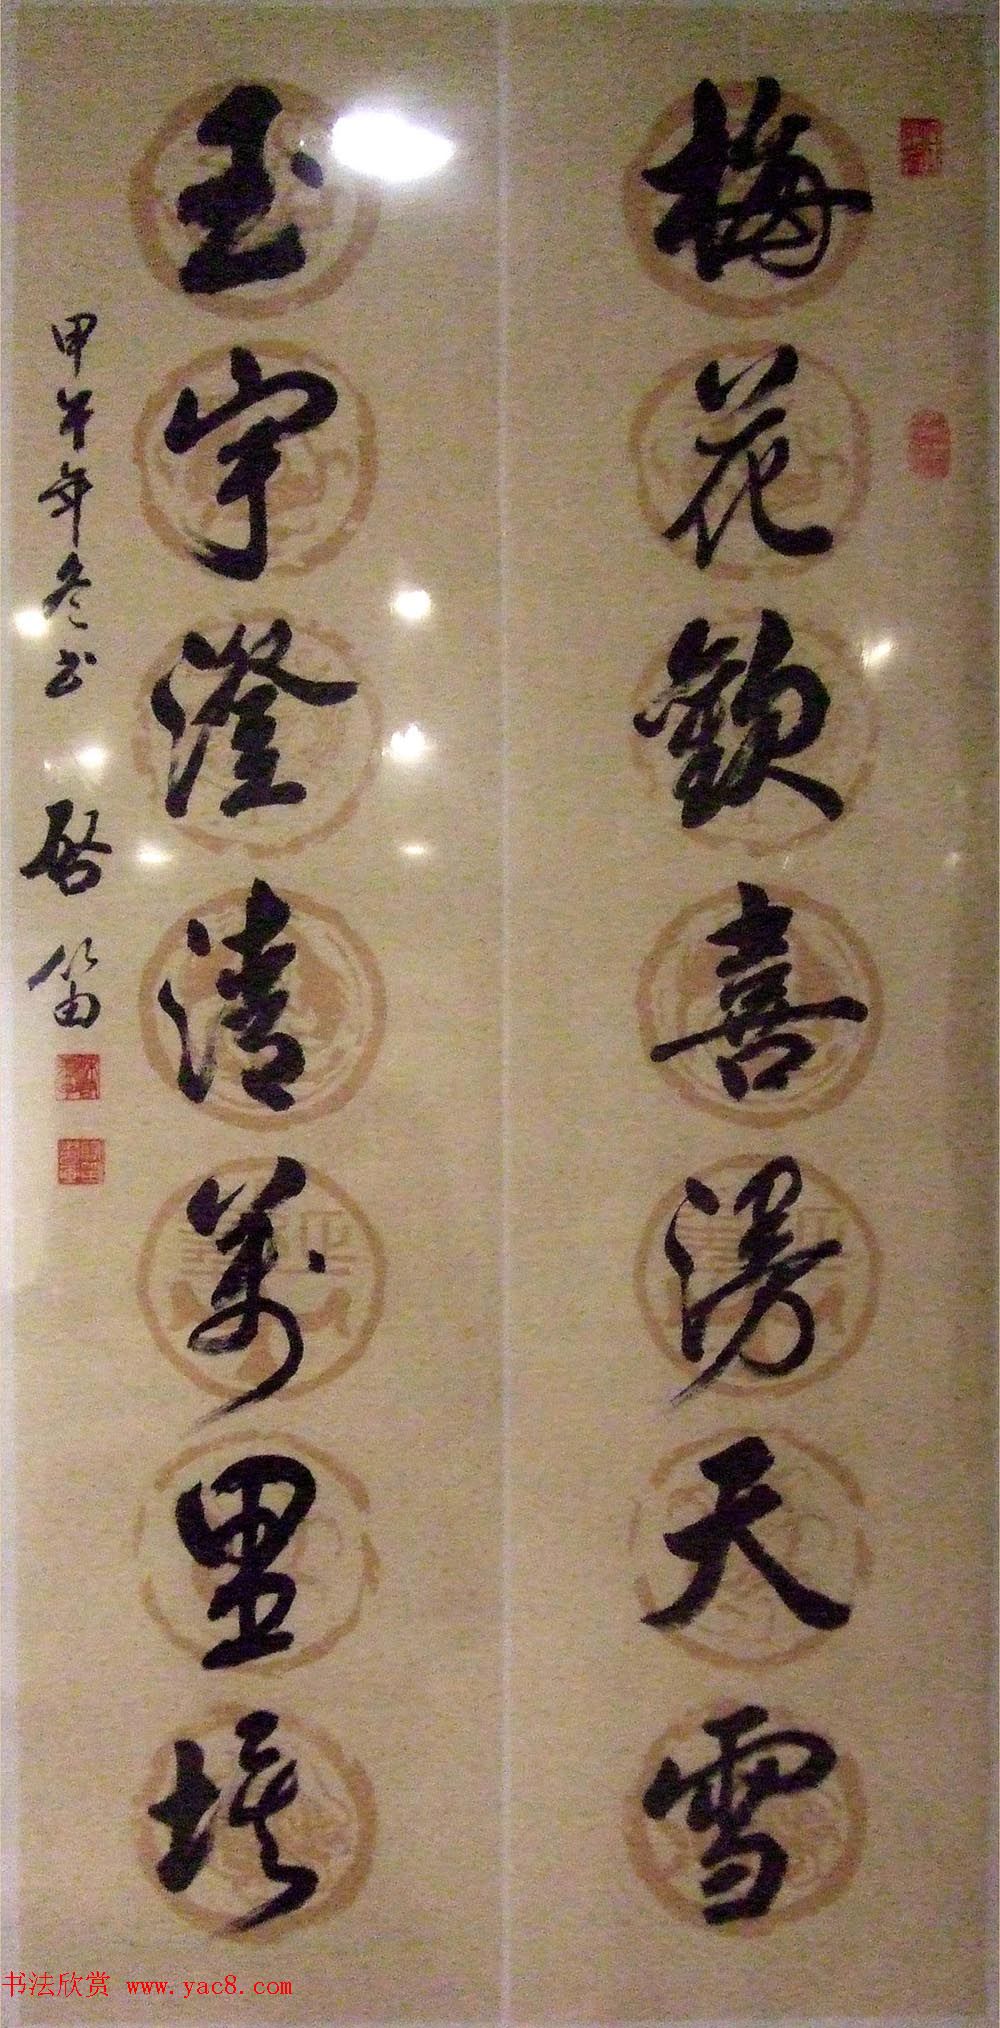 梅花歡喜漫天雪
玉宇澄清萬里埃
甲午年冬书
啓笛
书法欣赏 www.yac8.com